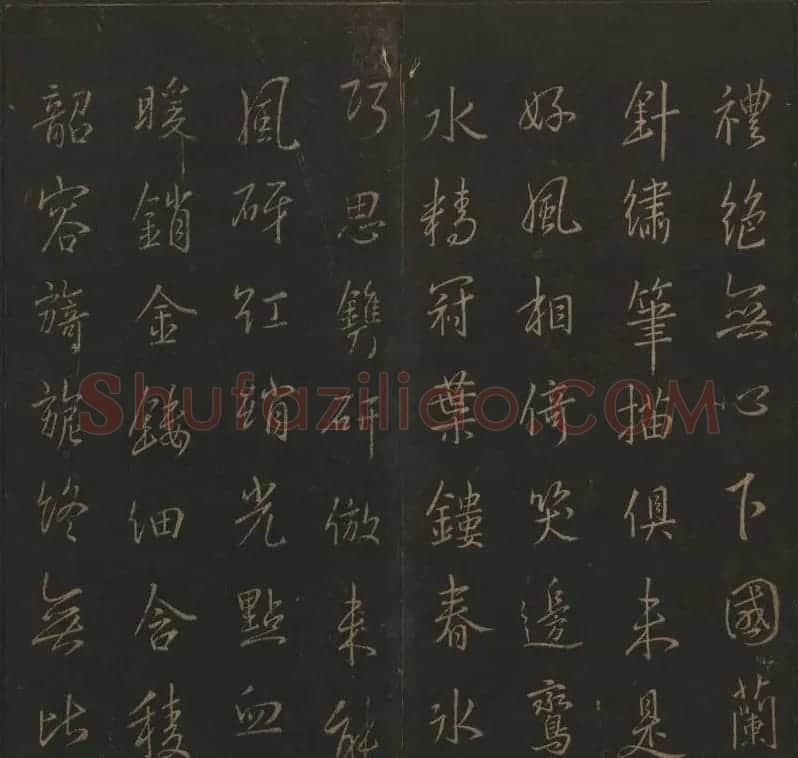 禮絕無心下國蘭
針繡筆描俱未是
好風相倚笑邊鸞
水精冠葉鏤春冰
巧思鐫研倣未能
風砑紅綃光點血
暖銷金縷細含稜
韶容旖旎終無比
Shufaziliao.COM